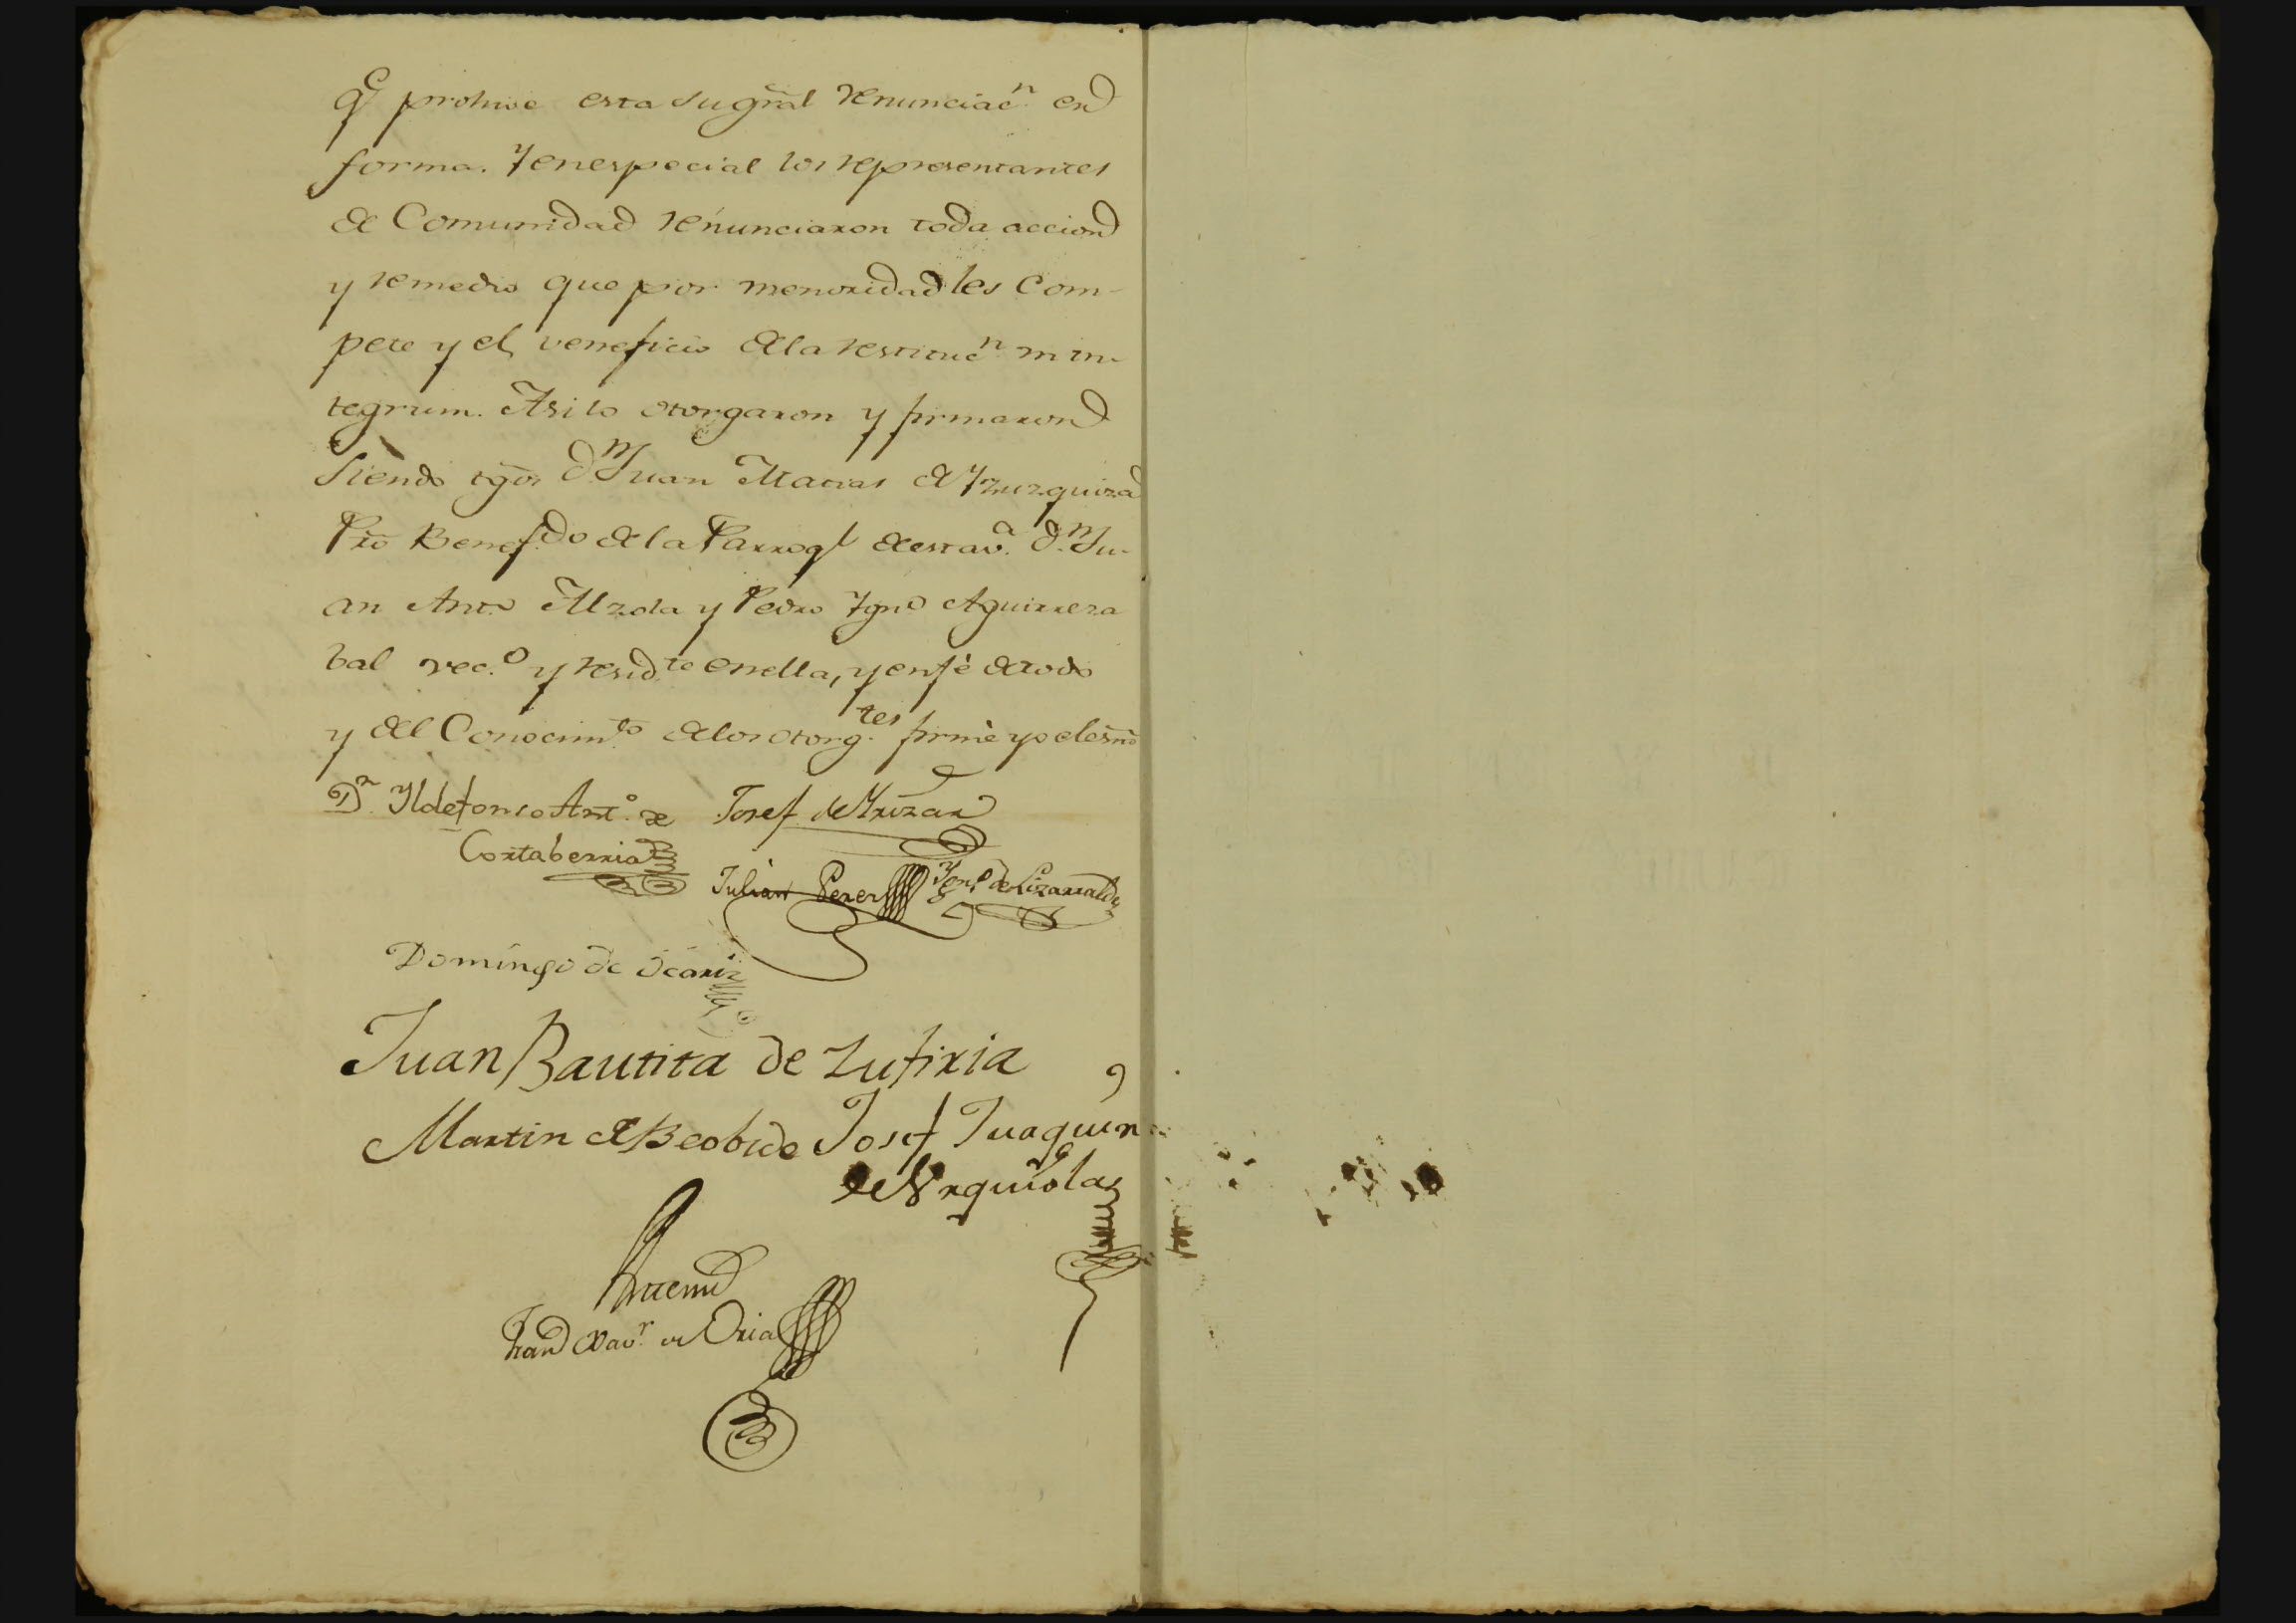 q.e prohive esta su gral renunciac.n en
forma. Y en especial los representantes
de Comunidad renunciaron toda accion
y remedio que por menoridad les Com-
pete y el veneficio de la restituc.n in in-
tegrum. Asi lo otorgaron y firmaron
siendo tgos d.n Juan Matias de Yzuzquiza
Pro Benef.do de la Parroql de esta v.a d.n Ju-
an Ant.o Alzola y Pedro Ygn.o Aguirreza
bal vec.o y resid.te en ella, y en fè de todo
y del Conocim.to de los otorg.tes firmè yo el esno
D.n Yldefonso Ant.o de Josef de Yrizar
Cortaberria
Julian Perez Ygn.o de Lizarralde
Domingo de Ocariz
Juan Bautita de Zufiria
Martin de Beobide Josef Juaquin
de Urquiola
Antemi
Fran Xav.r de Oria